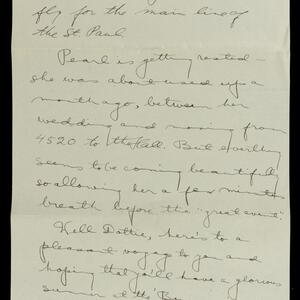 fly for the main line of
the St. Paul
Pearl is getting rested –
she was about used up a
month ago, between her
wedding and moving from
4520 to the Hall. But everything
seems to be coming beautifully
so allowing her a few minutes
breath before the "great event".
Well Dottie, here's to a
pleasant voyage to you and
hoping that you'll have a glorious
summer at the